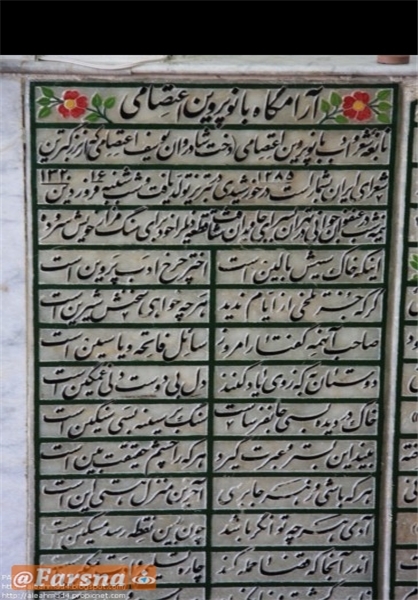 آرامگاه بانو پروین اعتصامی
نابغه شهر آفاق بانو پروین اعتصامی دخت شادروان یوسف اعتصامی که از بزرگترین
شعرای ایران بشمار است در ۱۲۸۵ خورشیدی در تبریز تولد یافت و شب شنبه ۱۶ فروردین ۱۳۲۰
در تهران این قطعه را خود برای سنگ مزار خویش سروده
اینکه خاک سیهش بالین است اختر چرخ ادب پروین است
گرچه جز تلخی از ایام ندید هرچه خواهی سخنش شیرین است
صاحب آنهمه گفتار امروز سائل فاتحه و یاسین است
دوستان به که ز وی یاد کنند دل بی دوست دلی غمگین است
خاک در دیده بسی جانفرساست سنگ بر سینه بسی سنگین است
بیند این بستر و عبرت گیرد هرکه را چشم حقیقت بین است
هرکه باشی و ز هر جا برسی آخرین منزل هستی این است
آدمی هرچه توانگر باشد چون بدین نقطه رسد مسکین است
اندر آنجا که قضا حمله کند
@Farsna